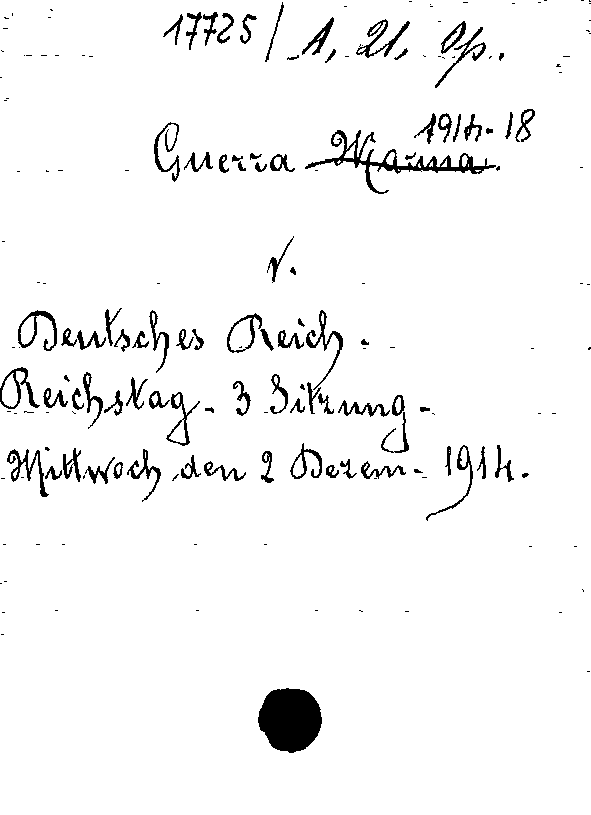 17725 / A, 21, Op.
1914-18
Guerra Marma.
v.
Deutsches Reich.
Reichstag - 3 Sitzung -
Mittwoch den 2 Dezem - 1914.